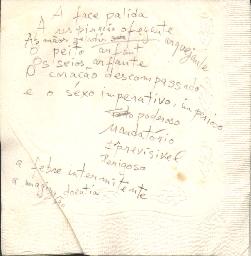 A face palida
A respiração ofegante
As mãos geladas
O peito arfant
Os seios arfante
O coração descompassado
e o séxo imperativo, imperioso
poderoso
Mandatório
Imprevisível
Perigoso
a febre intermitente
a magreza doentia